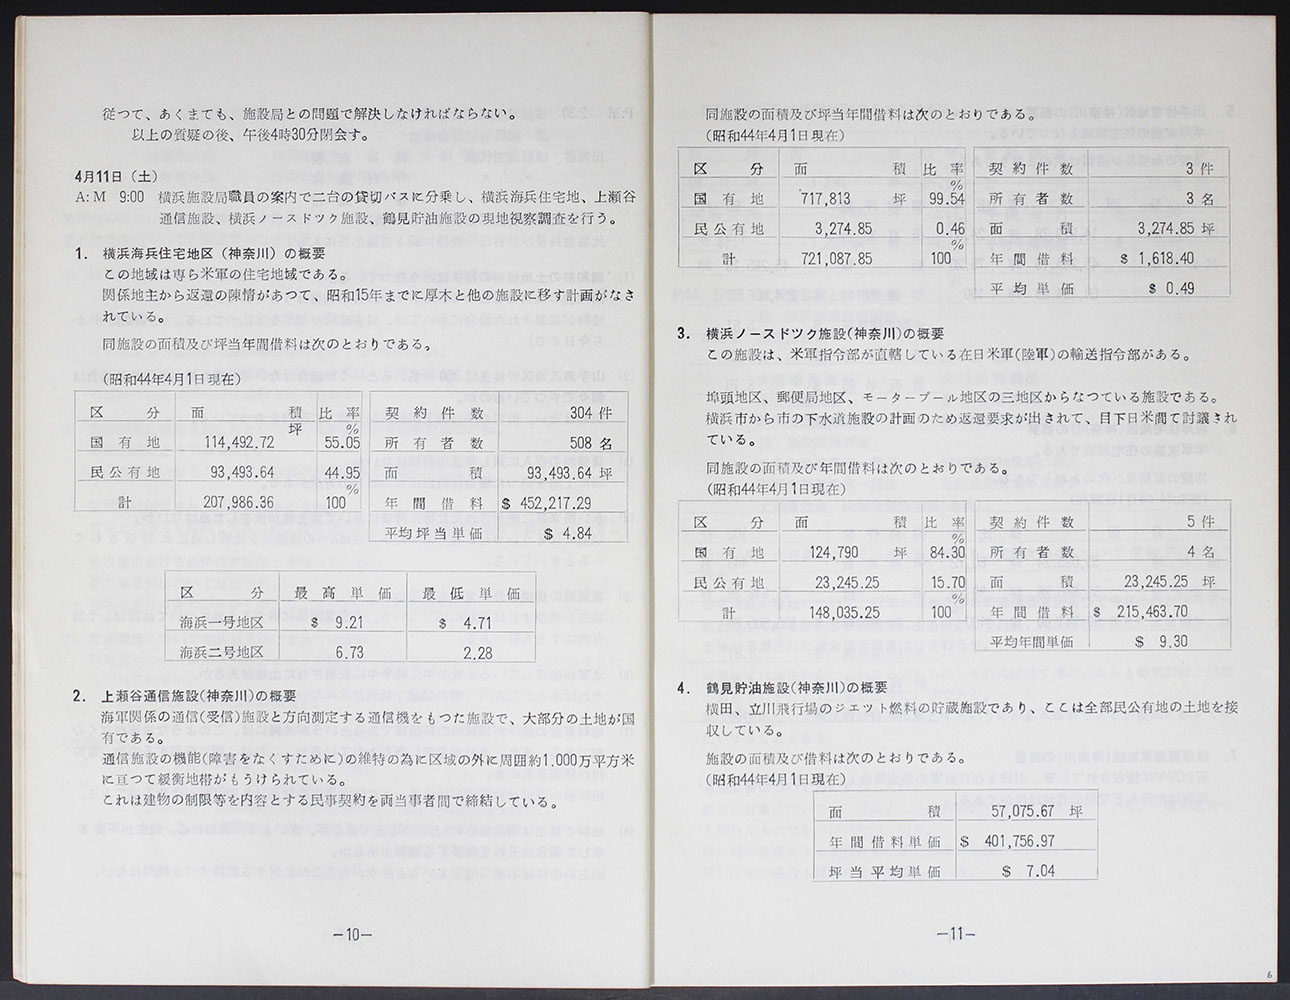 従つて、あくまても、施設局との問題で解決しなければならない。
以上の質疑の後、午後4時30分閉会す。
4月11日（土）
A:M 9:00 横浜施設局職員の案内で二台の貸切バスに分乗し、横浜海兵住宅地、上瀬谷
通信施設、横浜ノースドツク施設、鶴見貯油施設の現地視察調査を行う。
1. 横浜海兵住宅地区（神奈川）の概要
この地域は専ら米軍の住宅地域である。
関係地主から返還の陳情があつて、昭和15年までに厚木と他の施設に移す計画がなさ
れている。
同施設の面積及び坪当年間借料は次のとおりである。
（昭和44年4月1日現在）
区 分 面 積 比 率 契 約 件 数 304 件
坪 %
国 有 地 114,492.72 55.05 所 有 者 数 508 名
民公有地 93,493.64 44.95 面 積 93,493.64 坪
%
計 207,986.36 100 年 間 借 料 $ 452,217.29
平均坪当単価 $ 4.84
区 分 最 高 単 価 最 低 単 価
海浜一号地区 $ 9.21 $ 4.71
海浜二号地区 6.73 2.28
2. 上瀬谷通信施設(神奈川)の概要
海軍関係の通信(受信)施設と方向測定する通信機をもつた施設で、大部分の土地が国
有である。
通信施設の機能(障害をなくすために)の維特の為に区域の外に周囲約1.000万平方米
に亘つて緩衝地帯がもうけられている。
これは建物の制限等を内容とする民事契約を両当事者間で締結している。
—10—
同施設の面積及び坪当年間借料は次のとおりである。
(昭和44年4月1日現在)
区 分 面 積 比 率 契 約 件 数 3 件
%
国 有 地 717,813 坪 99.54 所 有 者 数 3 名
民公有地 3,274.85 0.46 面 積 3,274.85 坪
%
計 721,087.85 100 年 間 借 料 $ 1,618.40
平 均 単 価 $ 0.49
3. 横浜ノースドツク施設(神奈川)の概要
この施設は、米軍指令部が直轄している在日米軍(陸軍)の輸送指令部がある。
埠頭地区、郵便局地区、モータープール地区の三地区からなつている施設である。
横浜市から市の下水道施設の計画のため返還要求が出されて、目下日米間て討議され
ている。
同施設の面積及び年間借料は次のとおりである。
(昭和44年4月1日現在)
区 分 面 積 比 率 契 約 件 数 5 件
%
国 有 地 124,790 坪 84.30 所 有 者 数 4 名
民公有地 23,245.25 15.70 面 積 23,245.25 坪
%
計 148,035.25 100 年 間 借 料 $ 215,463.70
平均年間単価 $ 9.30
4. 鶴見貯油施設(神奈川)の概要
横田、立川飛行場のジエツト燃料の貯蔵施設であり、ここは全部民公有地の土地を接
収している。
施設の面積及び借料は次のとおりである。
(昭和44年4月1日現在)
面 積 57,075.67 坪
年間借料単価 $ 401,756.97
坪当平均単価 $ 7.04
—11—
6